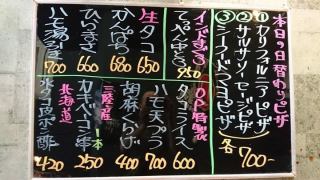 本日の日替わりピザ
①カリフォルニアピザ
②サルサソーセージピザ
③シーフードマヨピザ
各700-
生タコ 650
かんぱち 680
ひらまさ 660
ハモ湯引 700
インドまぐろ
950
OP特製
タコライス 600
ハモ天プラ 700
胡麻くらげ 400
三陸産
カマンベール串 250
1本
北海道
ポン酢 420